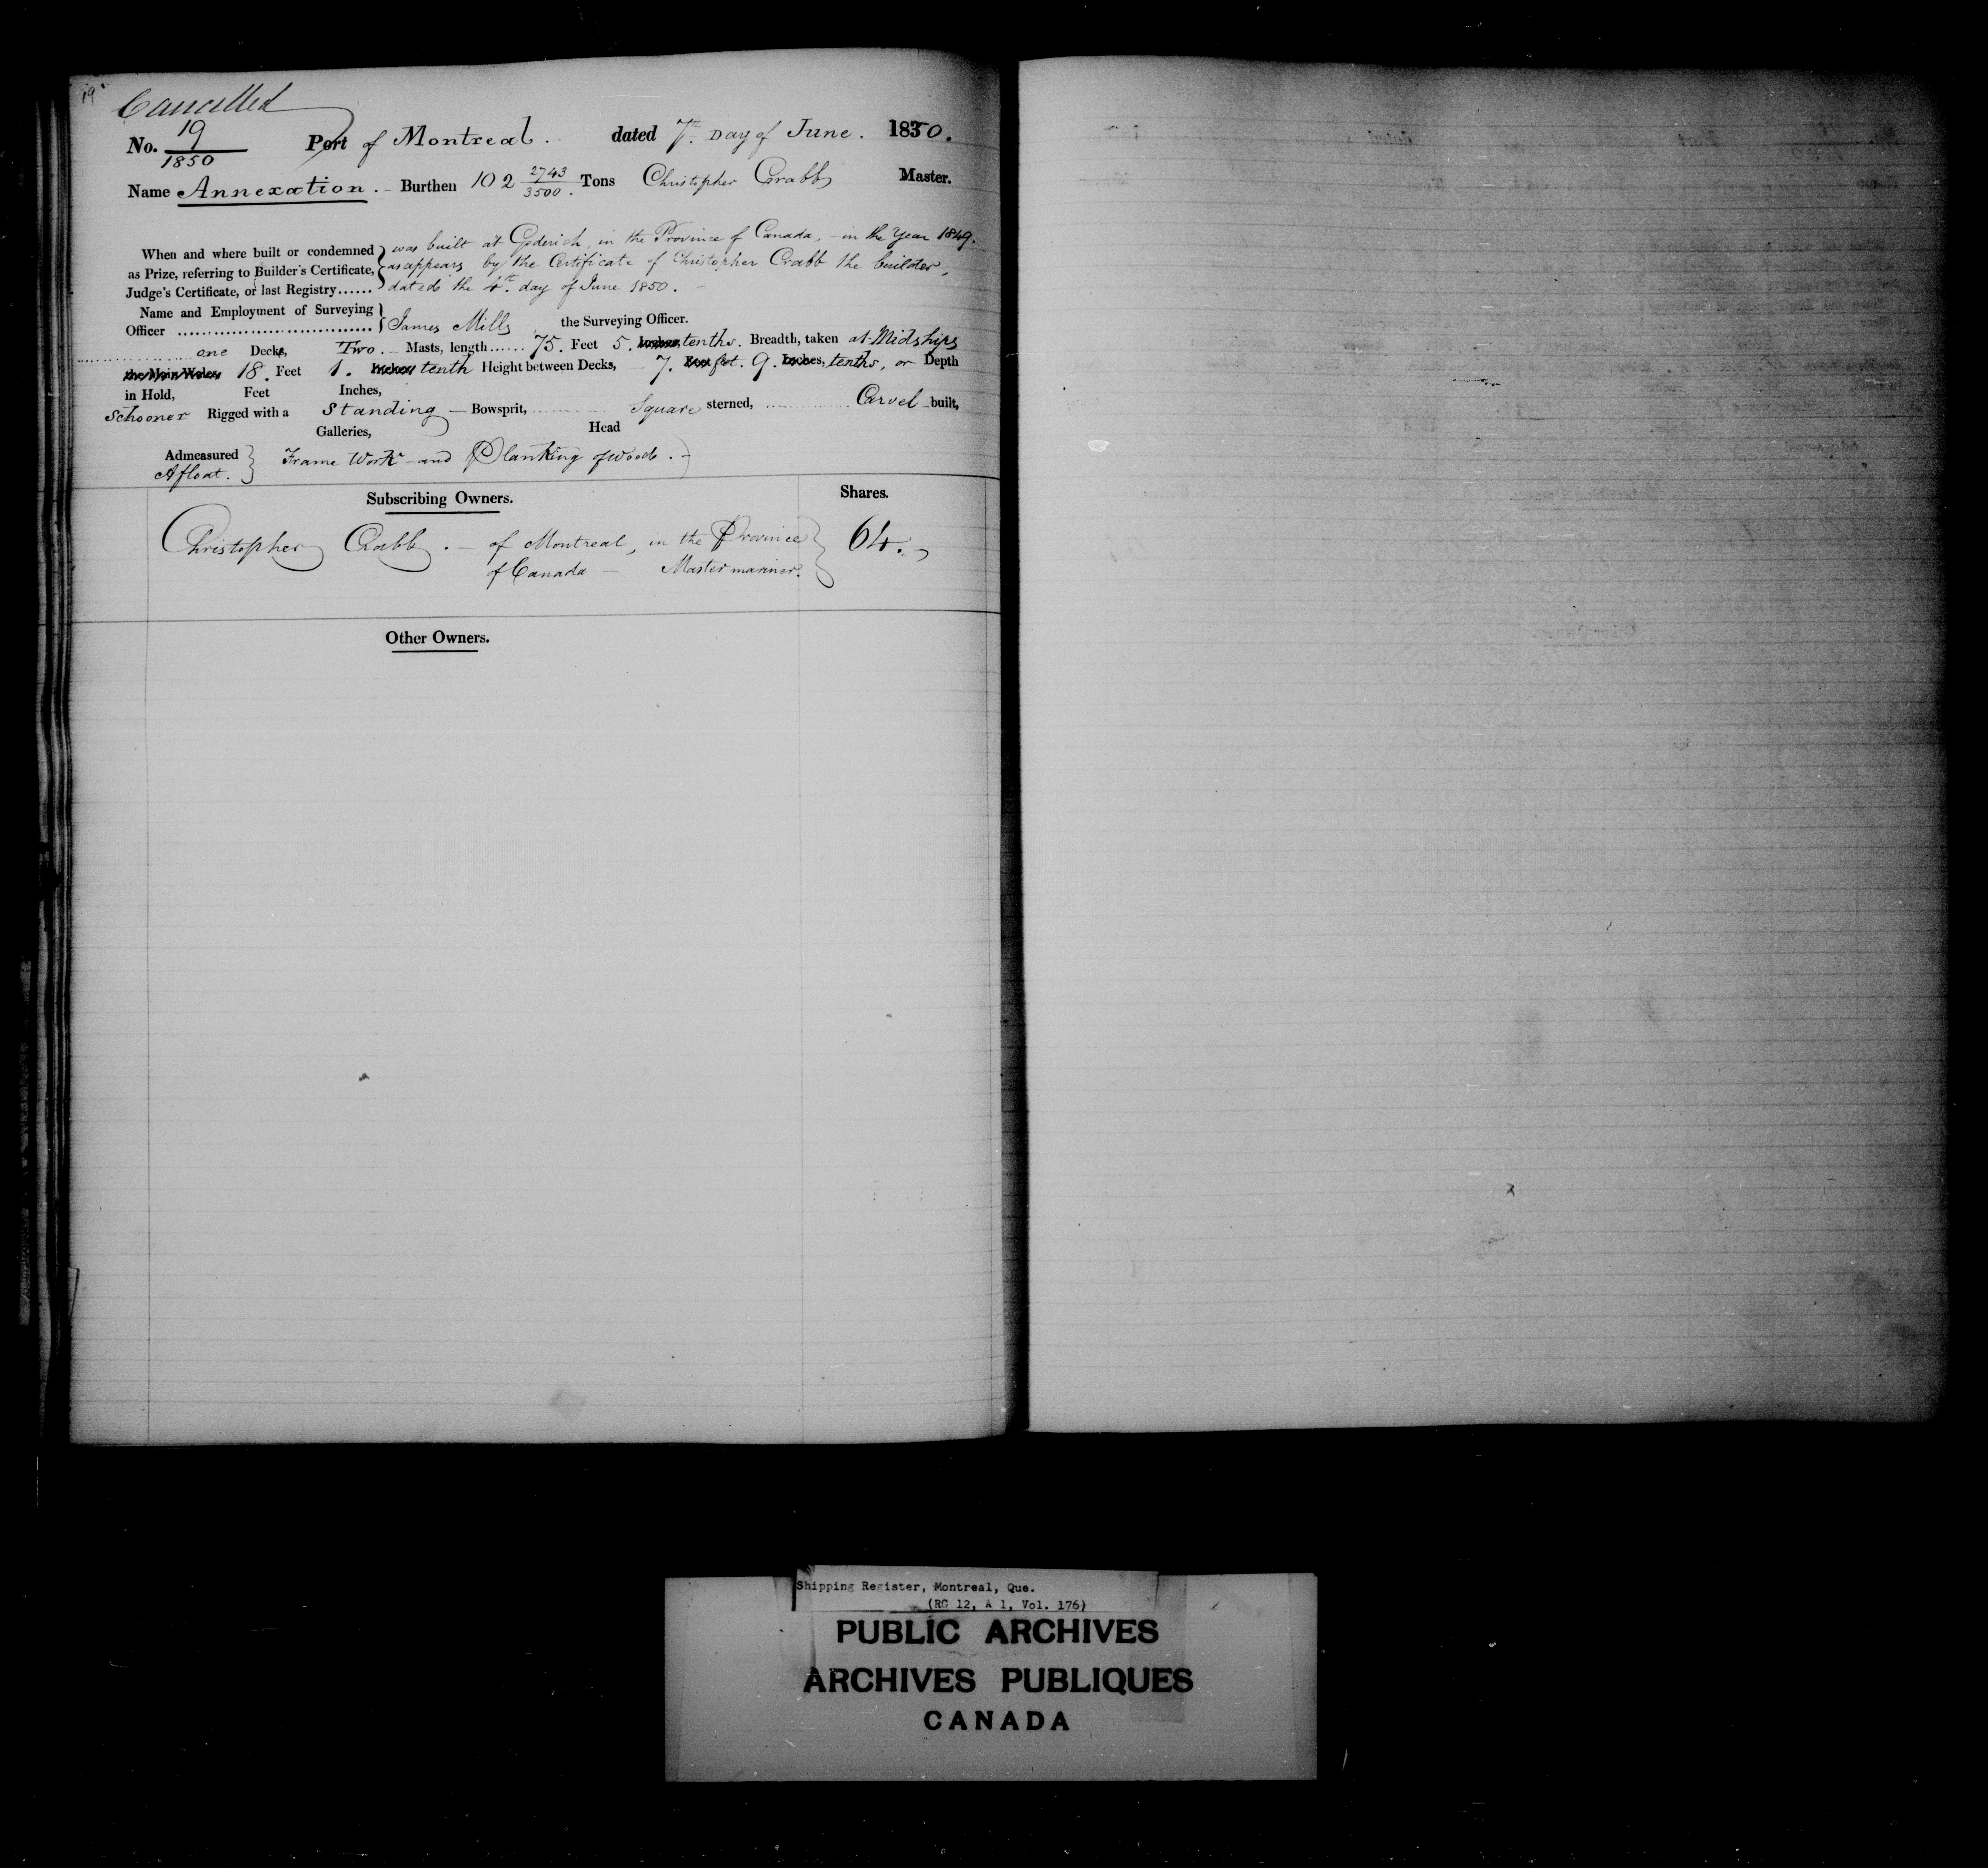 19
Cancelled
No. 19/1850 Port of Montreal. dated 7th Day of June. 1850.
Name Annexation. Burthen 102 2743/3500. Tons Christopher Crabb Master.
When and where built or condemned as Prize, referring to Builder's Certificate, Judge's Certificate, or last Registry......
was built at Goderich, in the Province of Canada, - in the Year 1849.
as appears by the Certificate of Christopher Crabb the builder,
dated the 4th day of June 1850. -
Name and Employment of Surveying
Officer .............................. James Mills, the Surveying Officer.
one Decks, Two. - Masts, length...... 75. Feet 5. Inches, tenths. Breadth, taken at Midships
the Main Wales, 18. Feet 1. Inches, tenth Height between Decks, 7. Feet feet. 9. Inches, tenths, or Depth
in Hold, Feet Inches,
Schooner Rigged with a Standing - Bowsprit, Square sterned, Carvel built,
Galleries, Head
Admeasured
Afloat. Frame Work - and Planking of wood. -
Subscribing Owners. Shares.
Christopher Crabb. - of Montreal, in the Province 64.
of Canada - Master mariner.
Other Owners.
Shipping Register, Montreal, Que.
(RG 12, A 1, Vol. 176)
PUBLIC ARCHIVES
ARCHIVES PUBLIQUES
CANADA